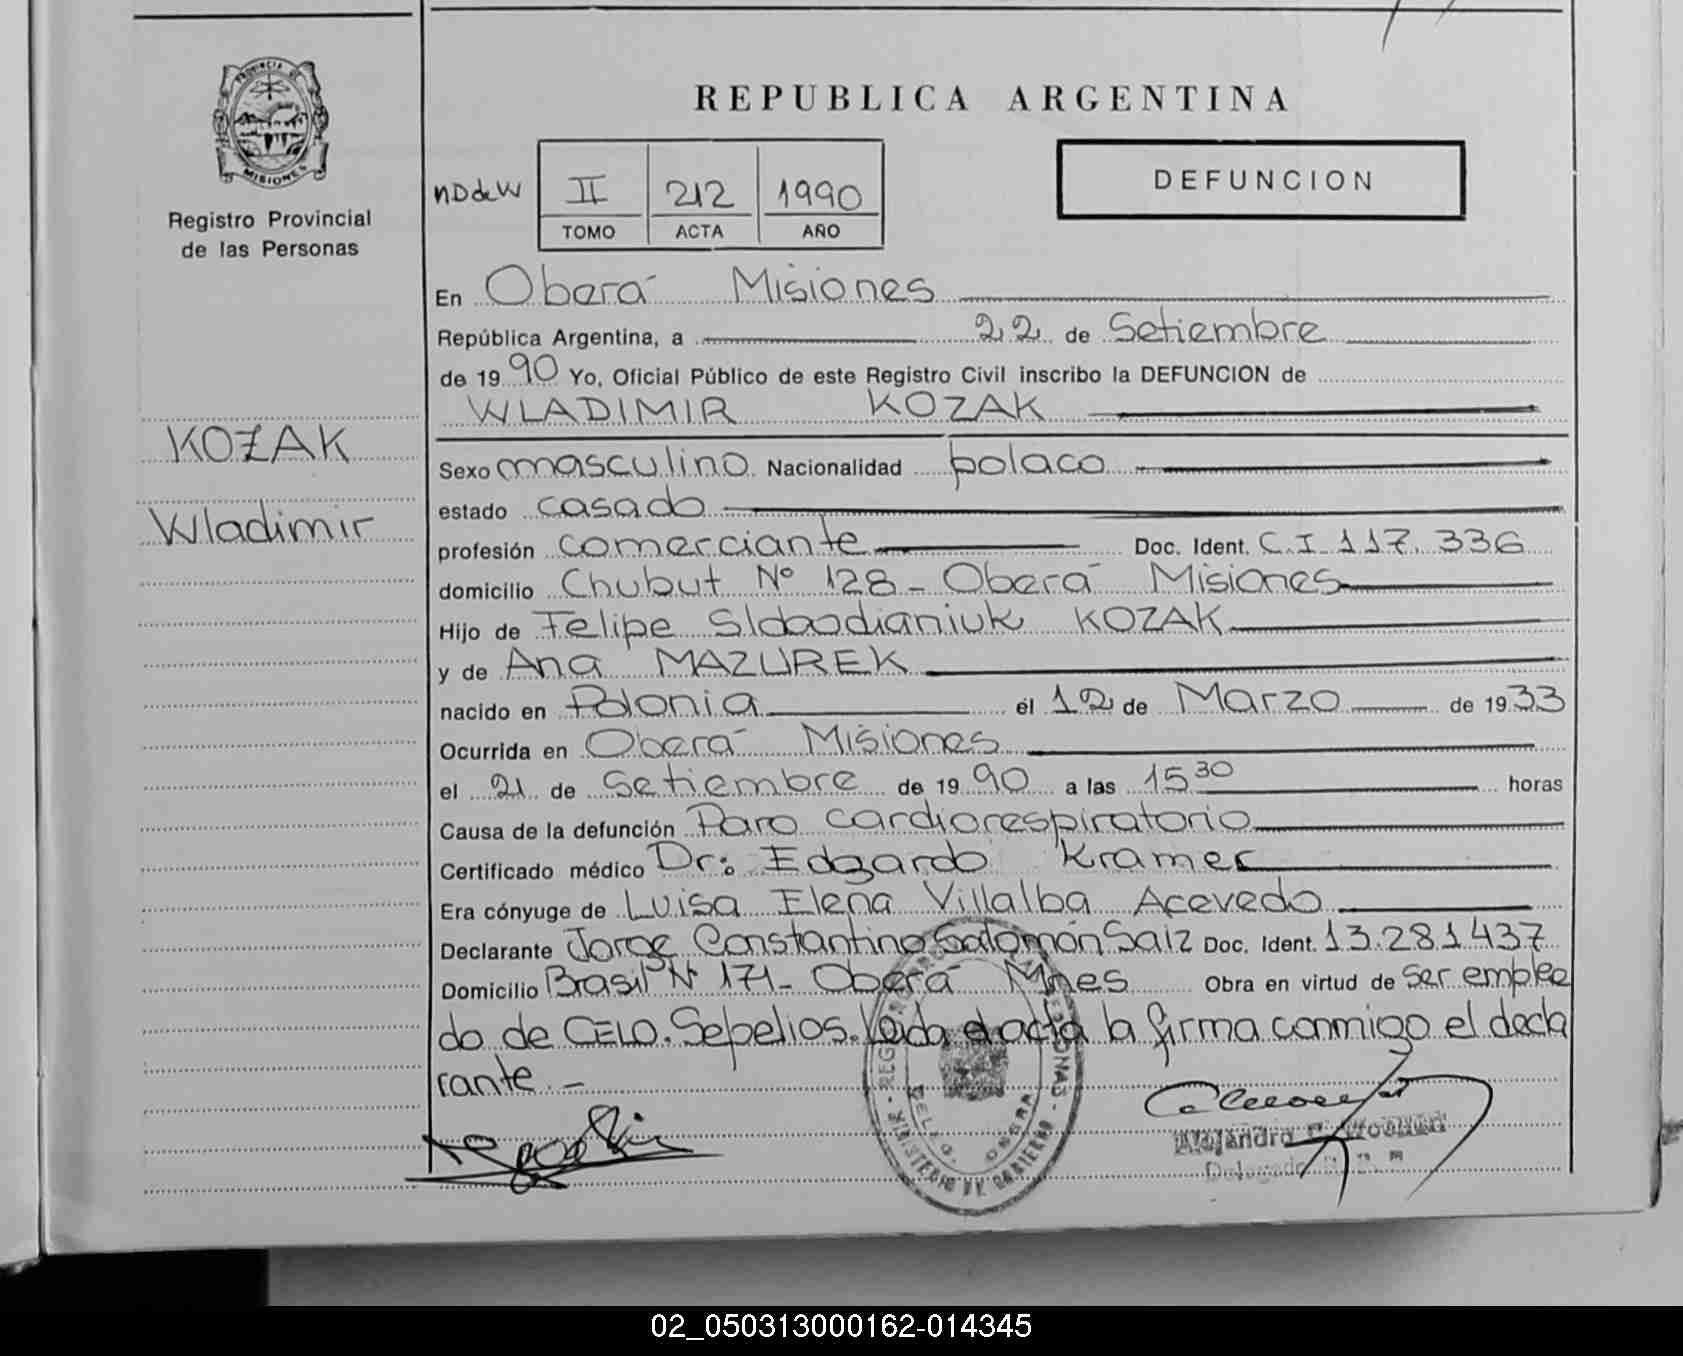 PROVINCIA DE
MISIONES
Registro Provincial
de las Personas
KOZAK
Wladimir
REPUBLICA ARGENTINA
DEFUNCION
II 212 1990
TOMO ACTA AÑO
En Oberá Misiones
República Argentina, a 22 de Setiembre
de 1990 Yo, Oficial Público de este Registro Civil inscribo la DEFUNCION de
WLADIMIR KOZAK
Sexo masculino Nacionalidad polaco
estado casado
profesión comerciante Doc. Ident. C.I 117.336
domicilio Chubut Nº 128 - Oberá Misiones
Hijo de Felipe KOZAK
y de Ana MAZUREK
nacido en Polonia el 12 de Marzo de 1933
Ocurrida en Oberá Misiones
el 21 de Setiembre de 1990 a las 15 30 horas
Causa de la defunción Paro cardiorespiratorio
Certificado médico Dr: Edgardo Kramer
Era cónyuge de Luisa Elena Villalba Acevedo
Declarante Jorge Constantino Salomón Saiz Doc. Ident. 13.281437
Domicilio Brasil Nº 171 - Oberá Mnes Obra en virtud de ser emplea
do de CELO. Sepelios. Leida el acta la firma conmigo el decla
rante. -
MINISTERIO DE GOBIERNO
DELEG. OBERA
02_050313000162-014345